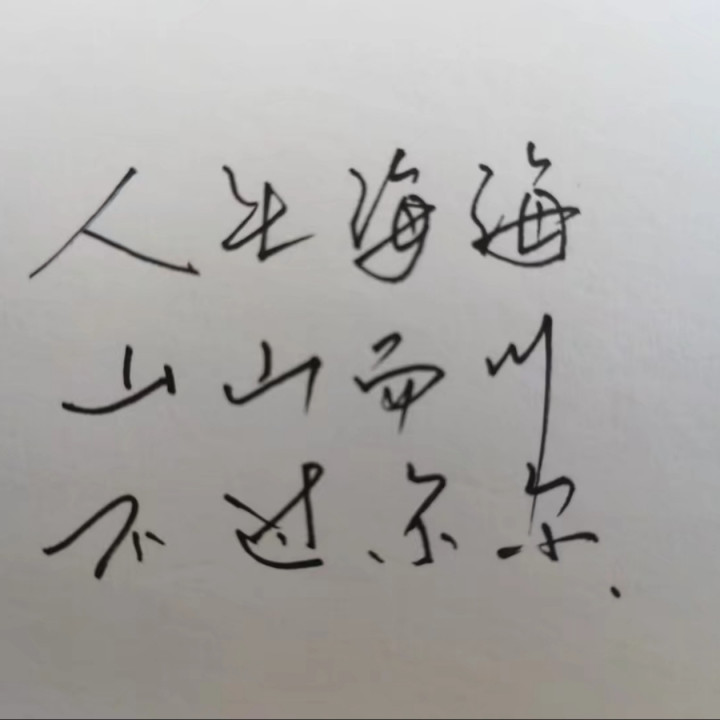 人生海海
山山而川
不过尔尔.